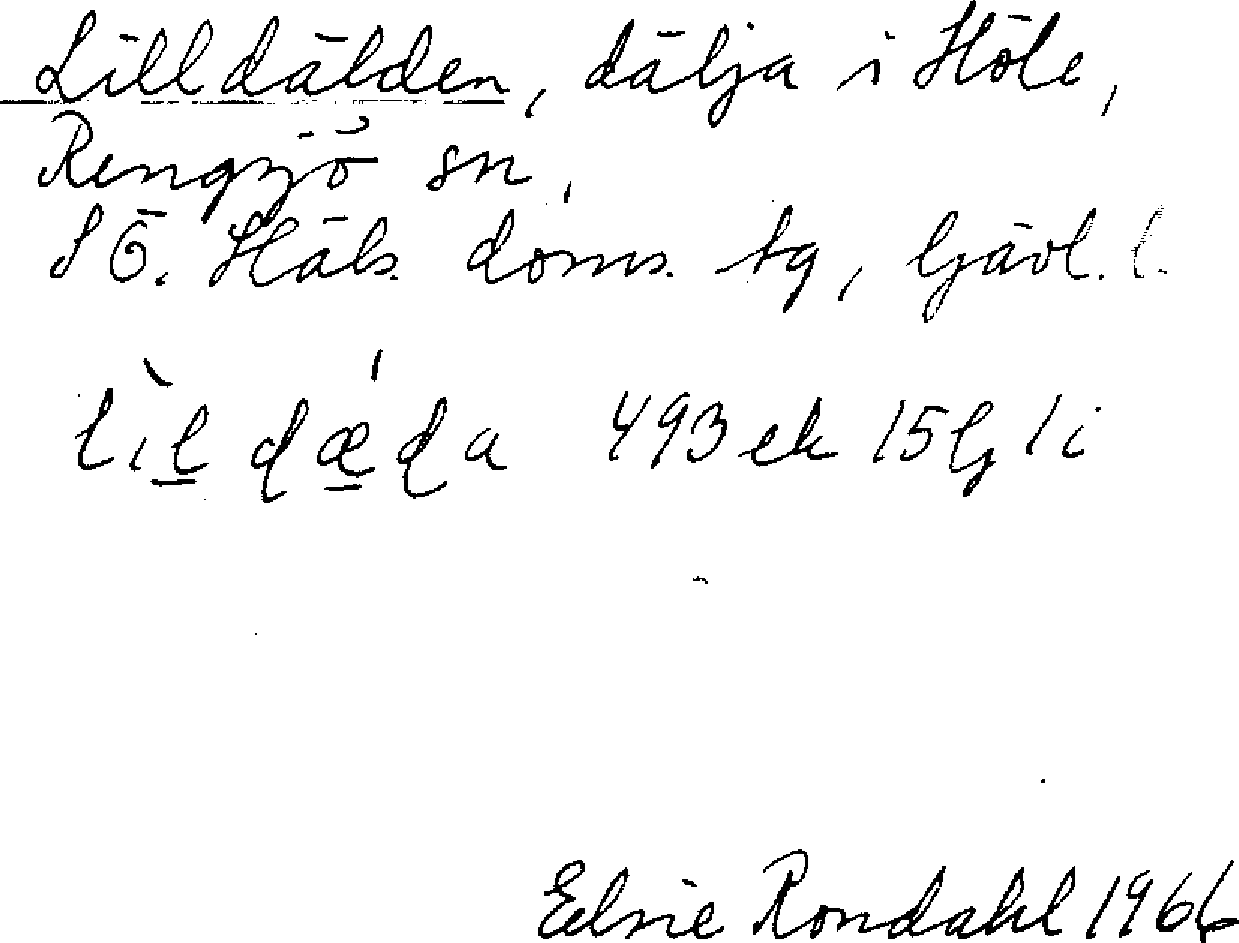 Lilldälden, dälja i Höle,
Rengsjö sn,
S Ö. Häls. doms. tg, Gävl. l.
lìl dæ̀da 493 ek 15G 1i
Elsie Rondahl 1966